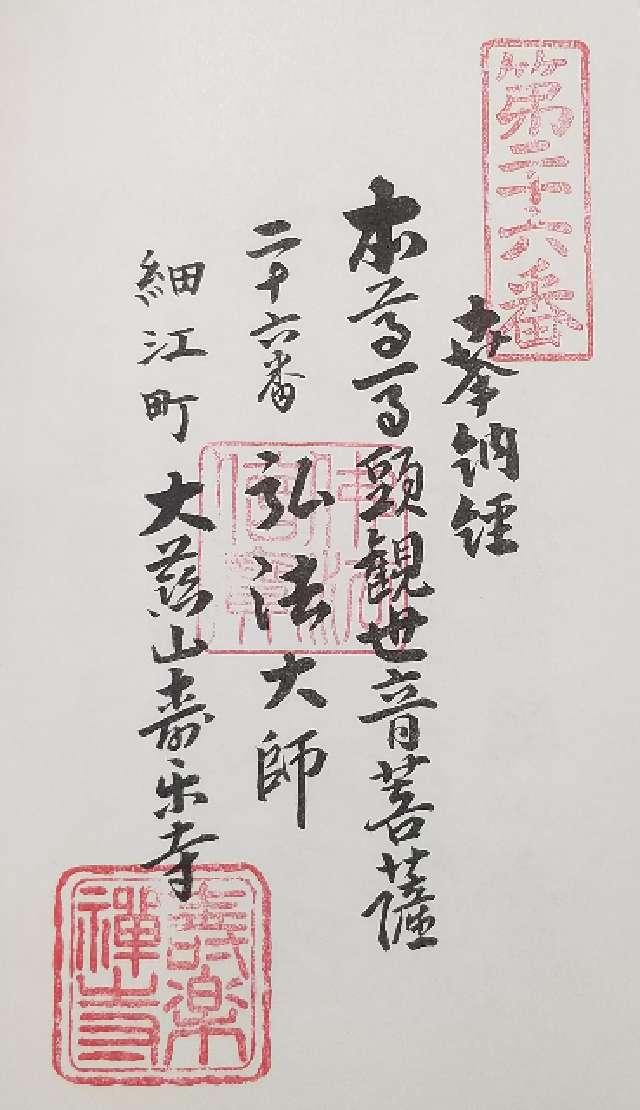 第二十六番
奉納経
本尊馬頭観世音菩薩
二十六番 弘法大師
細江町 大慈山寿楽寺
佛法僧寶
壽楽禅寺